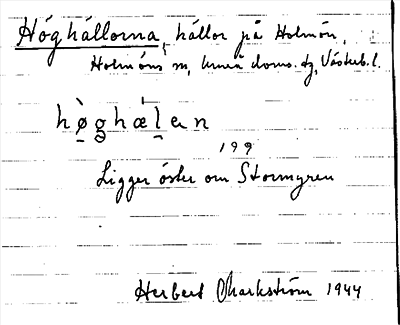 Höghällorna, hällor på Holmön,
Holmöns sn, Umeå doms. tg, Västerb. l.
hø̀ghæ̍lan
199
Ligger öster om Stormyren
Herbert Markström 1944